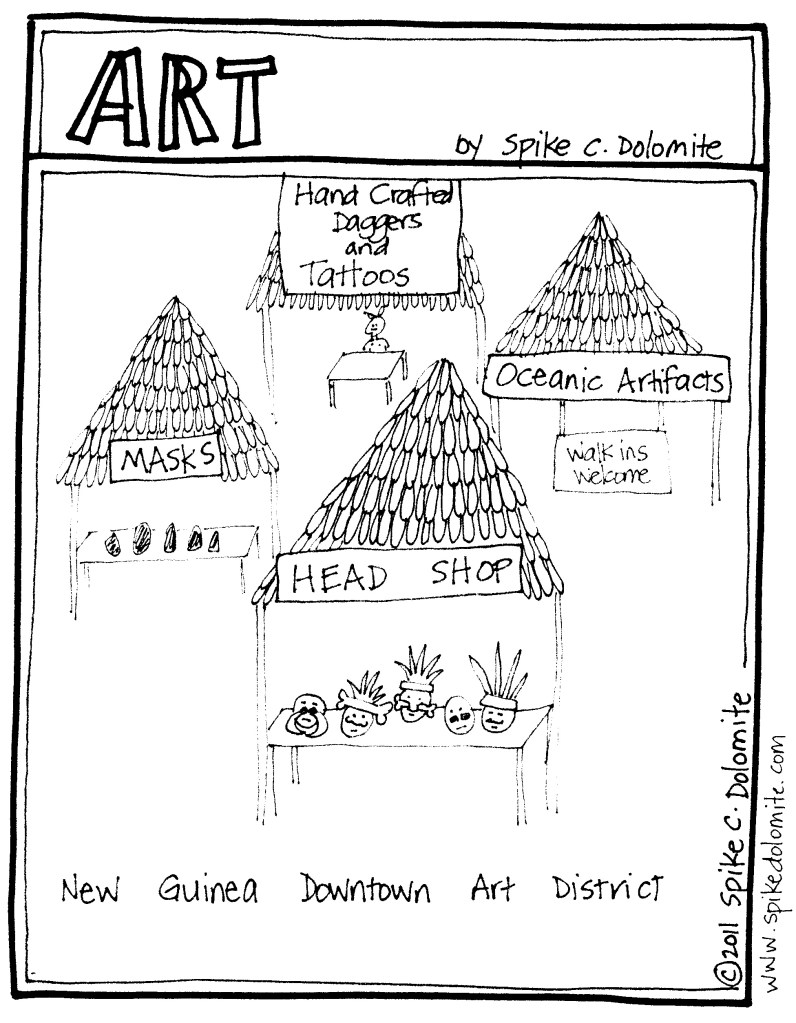 ART
by Spike C. Dolomite
Hand Crafted
Daggers
and
Tattoos
Oceanic Artifacts
walk ins
welcome
MASKS
HEAD SHOP
New Guinea Downtown Art District
©2011 Spike C. Dolomite
www.spikedolomite.com